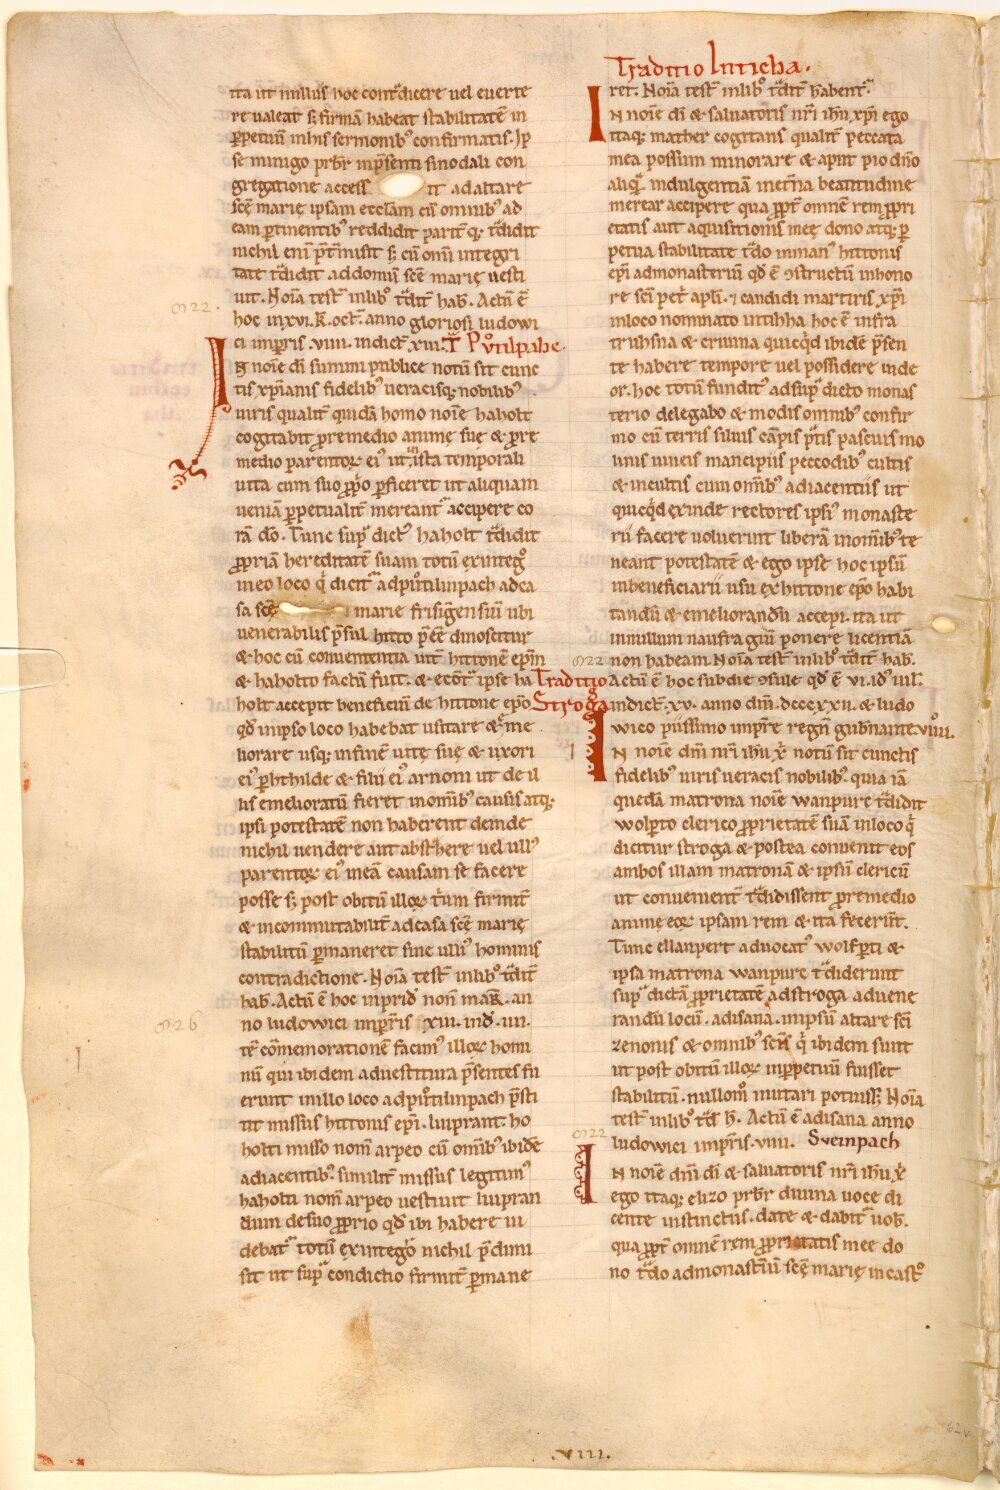 ita ut nullus hoc cont̃dicere uel euerte
re ualeat s; firmã habeat stabilitatẽ in
ꝑpetuũ in his sermonib; confirmatis. Ip
se minigo prb̃r inp̃senti sinodali con
gregatione access it ad altare
sc̃e marię ipsam eccl̃am cũ omnib; ad
eam ꝑtinentib; reddidit parit̃ q; t̃didit
nichil eni p̃t̃misit s; cũ om̃i integri
tate t̃didit ad domũ sc̃e marię uesti
uit. Noĩa test̃ in lib̃o t̃dit̃ hab̃. Actũ ẽ
hoc in xvi. k̃. oct̃. anno gloriosi ludowi
ci imp̃ris. viiii. indict̃. xiii. T̃ Půtilpahe.
In noĩe dĩ summi publice notũ sit cunc
tis xp̃ianis fidelib; ueracisq; nobilib;
uiris qualit̃ quidã homo noĩe haholt
cogitabit ꝓ remedio animę suę & ꝓ re
medio parentoꝝ ei; ut in ista temporali
uita cum suo ꝓp̃o ꝑficeret ut aliquam
ueniã ꝑpetualit̃ mereant̃ accipere co
rã dõ. Tunc sup̃ dict; haholt t̃didit
ꝓpriã hereditatẽ suam totũ ex integ̃
in eo loco q̃ dicit̃ ad půtilinpach ad ca
sa sc̃ę marie frisigẽsiũ ubi
uenerabilis p̃sul hitto p̃ẽẽ dinoscitur
& hoc cũ conuenientia int̃ hittonẽ ep̃m
& haholto factũ fuit. & ecõt̃ ipse ha
holt accepit beneficiũ de hittone ep̃o
qd̃ in ipso loco habebat usitare & me
liorare usq; in finẽ uitę suę & uxori
ei; ꝑhthilde & filii ei; arnoni ut de il
lis emelioratũ fieret in om̃ib; causis atq;
ipsi potestatẽ non haberent deinde
nichil uendere aut abst̃here uel ull;
parentoꝝ ei; in eã causam se facere
posse s; post obitũ illoꝝ t̃um firmit̃
& incommutabilit̃ ad casa sc̃ę marię
stabilitũ ꝑmaneret sine ulli; hominis
contradictione. Noĩa test̃ in lib̃o t̃dit̃
hab̃. Actũ ẽ hoc in prid̃ non̄ mar̃. an
no ludowici imp̃ris xiii. ind̃. iiii.
tẽ cõmemorationẽ facim; illoꝝ homi
nũ qui ibidem ad uestitura p̃sentes fu
erunt in illo loco ad půtilinpach p̃sti
tit missus hittonis ep̃i. liuprant. ho
holti misso nom̃ arpeo cũ om̃ib; ibidẽ
adiacentib;. similit̃ missus legitim;
haholti nom̃ arpeo uestiuit liupran
dum de suo ꝓprio qd̃ ibi habere ui
debat̃ totũ ex integ̃o nichil p̃dimi
sit ut sup̃ condictio firmit̃ ꝑmane
Traditio Inticha.
ret. Noĩa test̃ in lib̃o t̃dit̃ habent̃.
In noĩe dĩ & saluatoris nr̃i ihũ xp̃i ego
itaq; mather cogitans qualit̃ peccata
mea possum minorare & aput pio dñO
aliq̃ indulgentiã in et̃na beatitudine
merear accipere qua ꝓpt̃ omnẽ rem ꝓpri
etatis aut aquisitionis meę dono atq; ꝑ
petua stabilitate t̃do in man; hittonis
ep̃i ad monasteriũ qd̃ ẽ ꝯstructũ in hono
re sc̃i pet̃ apl̃i. & candidi martiris xp̃i
in loco nominato intihha hoc ẽ infra
triuhsna & eruina quicq̃d ibidẽ p̃sen
te habere tempore uel possidere uide
or. hoc totũ fundit̃ ad sup̃ dicto monas
terio delegabo & modis omnib; confir
mo cũ terris siluis cãpis p̃tis pascuis mo
linis uineis mancipiis peccodib; cultis
& incultis cum om̃ib; adiacentiis ut
quicq̃d exinde rectores ipsi; monaste
rii facere uoluerint liberã in om̃ib; te
neant potestatẽ & ego ipse hoc ipsũ
in beneficiarii usũ ex hittone ep̃o habi
tandũ & emeliorandũ accepi. ita ut
in nullum naufragiũ ponere licentiã
non habeam. Noĩa test̃ in lib̃o t̃dit̃ hab̃.
Actũ ẽ hoc sub die ꝯsule qd̃ ẽ vi. id̃ iul̃.
indict̃. xv. anno dñi. dcccxxii. & ludo
wico piissimo imp̃re regñ gub̃nante. viiii.
Traditio
Stroga
In noĩe dñi nr̃i ihũ xp̃i notũ sit cunctis
fidelib; uiris ueracis nobilib;. quia iã
quedã matrona noĩe wanpurc t̃didit
wolꝑto clerico ꝓprietatẽ suã in loco q̃
dicitur stroga & postea conuenit eos
ambos illam matronã & ipsũ clericũ
ut conuenient̃ t̃didissent ꝓ remedio
animę eoꝝ ipsam rem & ita fecer̃t.
Tunc ellanpert aduocat; wolfꝑti &
ipsa matrona wanpurc t̃diderunt
sup̃ dictã ꝓprietatẽ ad stroga ad uene
randũ locũ. ad isana. in ipsũ altare sc̃i
zenonis & omnib; sc̃is q̃ ibidem sunt
ut post obitũ illoꝝ in ꝑpetuũ fuisset
stabilitũ. nullom̃ mutari potuiss;. Noĩa
test̃ in lib̃o t̃d̃ h̃. Actũ ẽ ad isana anno
ludowici imp̃ris. viiii. Sveinpach
In noĩe dñi dĩ & saluatoris nr̃i ihũ xp̃i
ego itaq; elizo prb̃r diuina uoce di
cente instinctus. date & dabit̃ uob̃.
qua ꝓpt̃ omnẽ rem ꝓprietatis mee do
no t̃do ad monast̃iũ sc̃ę marię in cast̃o
822.
826
822
822
.viii.
62v